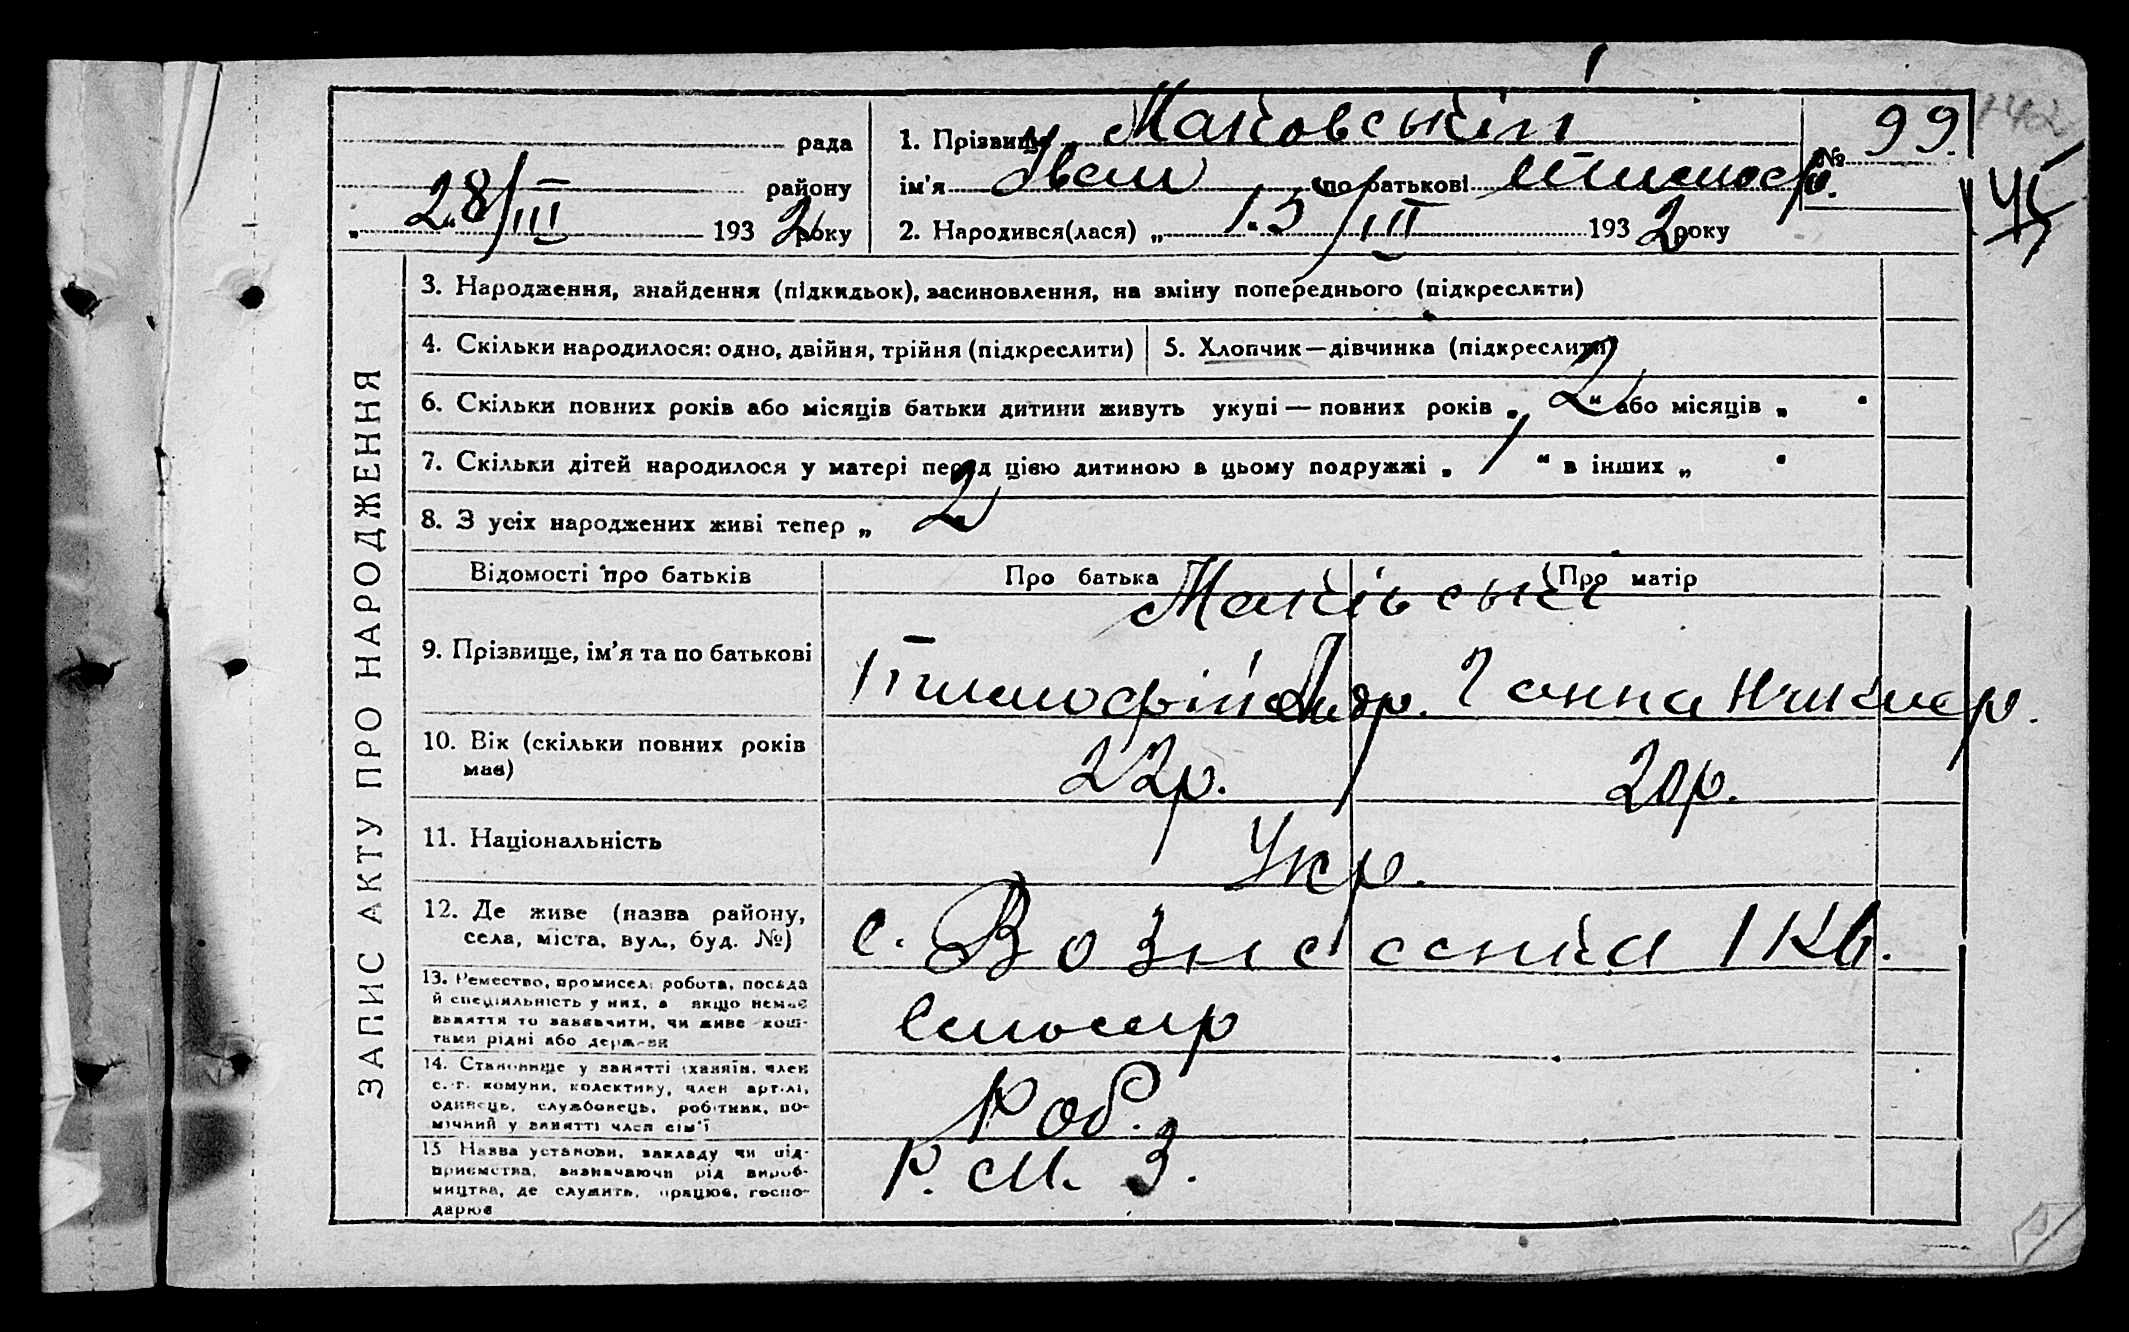 ЗАПИС АКТУ ПРО НАРОДЖЕННЯ
рада
району
„ 28/III “ 1932 року
1. Прізвище Маковський
ім'я Іван по батькові Тимоф.
№ 99.
142
2. Народився(лася) „ 15/III “ 1932 року
3. Народження, знайдення (підкидьок), засиновлення, на зміну попереднього (підкреслити)
4. Скільки народилося: одно, двійня, трійня (підкреслити)
5. Хлопчик—дівчинка (підкреслити)
6. Скільки повних років або місяців батьки дитини живуть укупі — повних років „ 2 “ або місяців „ “
7. Скільки дітей народилося у матері перед цією дитиною в цьому подружжі „ 1 “ в інших „ “
8. З усіх народжених живі тепер „ 2
Відомості про батьків
Про батька
Про матір
9. Прізвище, ім'я та по батькові
Маківські
Тимофій Андр.
Ганна Никиф
10. Вік (скільки повних років
має)
22р.
20р.
11. Національність
Укр.
12. Де живе (назва району,
села, міста, вул., буд. №)
с. Вознесенка 1 Кв.
13. Ремество, промисел, робота, посада
й спеціяльність у них, а якщо немає
заняття то зазначити, чи живе кош-
тами рідні або держави
Слюсар
14. Становище у занятті (хазяїн, член
с.-г. комуни, колективу, член артілі,
одинець, службовець, робітник, по-
мічний у занятті член сім'ї
Роб.
15 Назва установи, закладу чи під-
приємства, зазначаючи рід вироб-
ництва, де служить, працює, госпо-
дарює
Р. М. З.